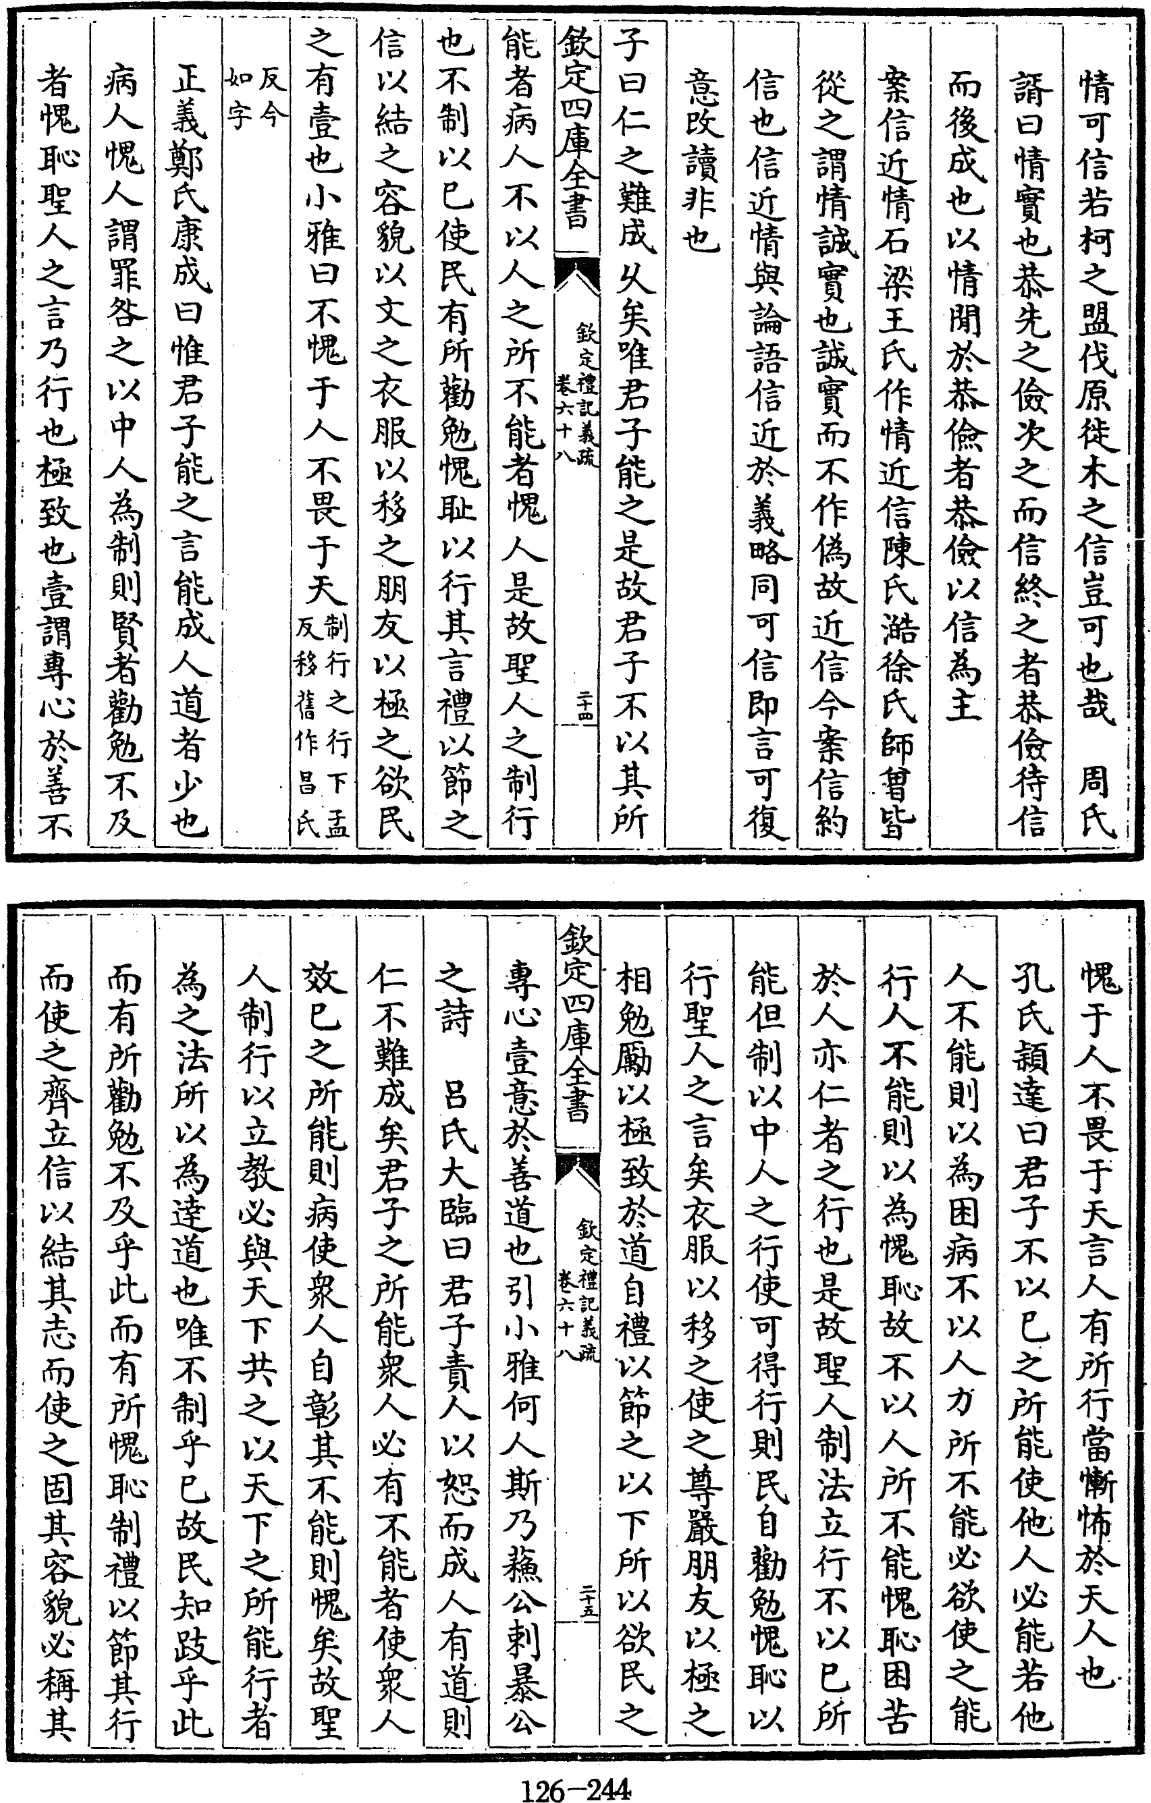 情可信若柯之盟伐原徙木之信豈可也哉　周氏
諝曰情實也恭先之儉次之而信終之者恭儉待信
而後成也以情閒於恭儉者恭儉以信為主
案信近情石梁王氏作情近信陳氏澔徐氏師曾皆
從之謂情誠實也誠實而不作偽故近信今案信約
信也信近情與論語信近於義略同可信即言可復
意改讀非也
子曰仁之難成久矣唯君子能之是故君子不以其所
欽定四庫全書
欽定禮記義疏
卷六十八
二十四
能者病人不以人之所不能者愧人是故聖人之制行
也不制以己使民有所勸勉愧耻以行其言禮以節之
信以結之容貌以文之衣服以移之朋友以極之欲民
之有壹也小雅曰不愧于人不畏于天制行之行下孟
反移舊作昌氏
反今
如字
正義鄭氏康成曰惟君子能之言能成人道者少也
病人愧人謂罪咎之以中人為制則賢者勸勉不及
者愧恥聖人之言乃行也極致也壹謂專心於善不
愧于人不畏于天言人有所行當慚怖於天人也
孔氏穎達曰君子不以已之所能使他人必能若他
人不能則以為困病不以人力所不能必欲使之能
行人不能則以為愧恥故不以人所不能愧恥困苦
於人亦仁者之行也是故聖人制法立行不以已所
能但制以中人之行使可得行則民自勸勉愧恥以
行聖人之言矣衣服以移之使之尊嚴朋友以極之
相勉勵以極致於道自禮以節之以下所以欲民之
欽定四庫全書
欽定禮記義疏
卷六十八
二十五
專心壹意於善道也引小雅何人斯乃蘓公刺暴公
之詩　呂氏大臨曰君子責人以恕而成人有道則
仁不難成矣君子之所能衆人必有不能者使衆人
效已之所能則病使衆人自彰其不能則愧矣故聖
人制行以立教必與天下共之以天下之所能行者
為之法所以為達道也唯不制乎已故民知跂乎此
而有所勸勉不及乎此而有所愧恥制禮以節其行
而使之齊立信以結其志而使之固其容貌必稱其
126-244